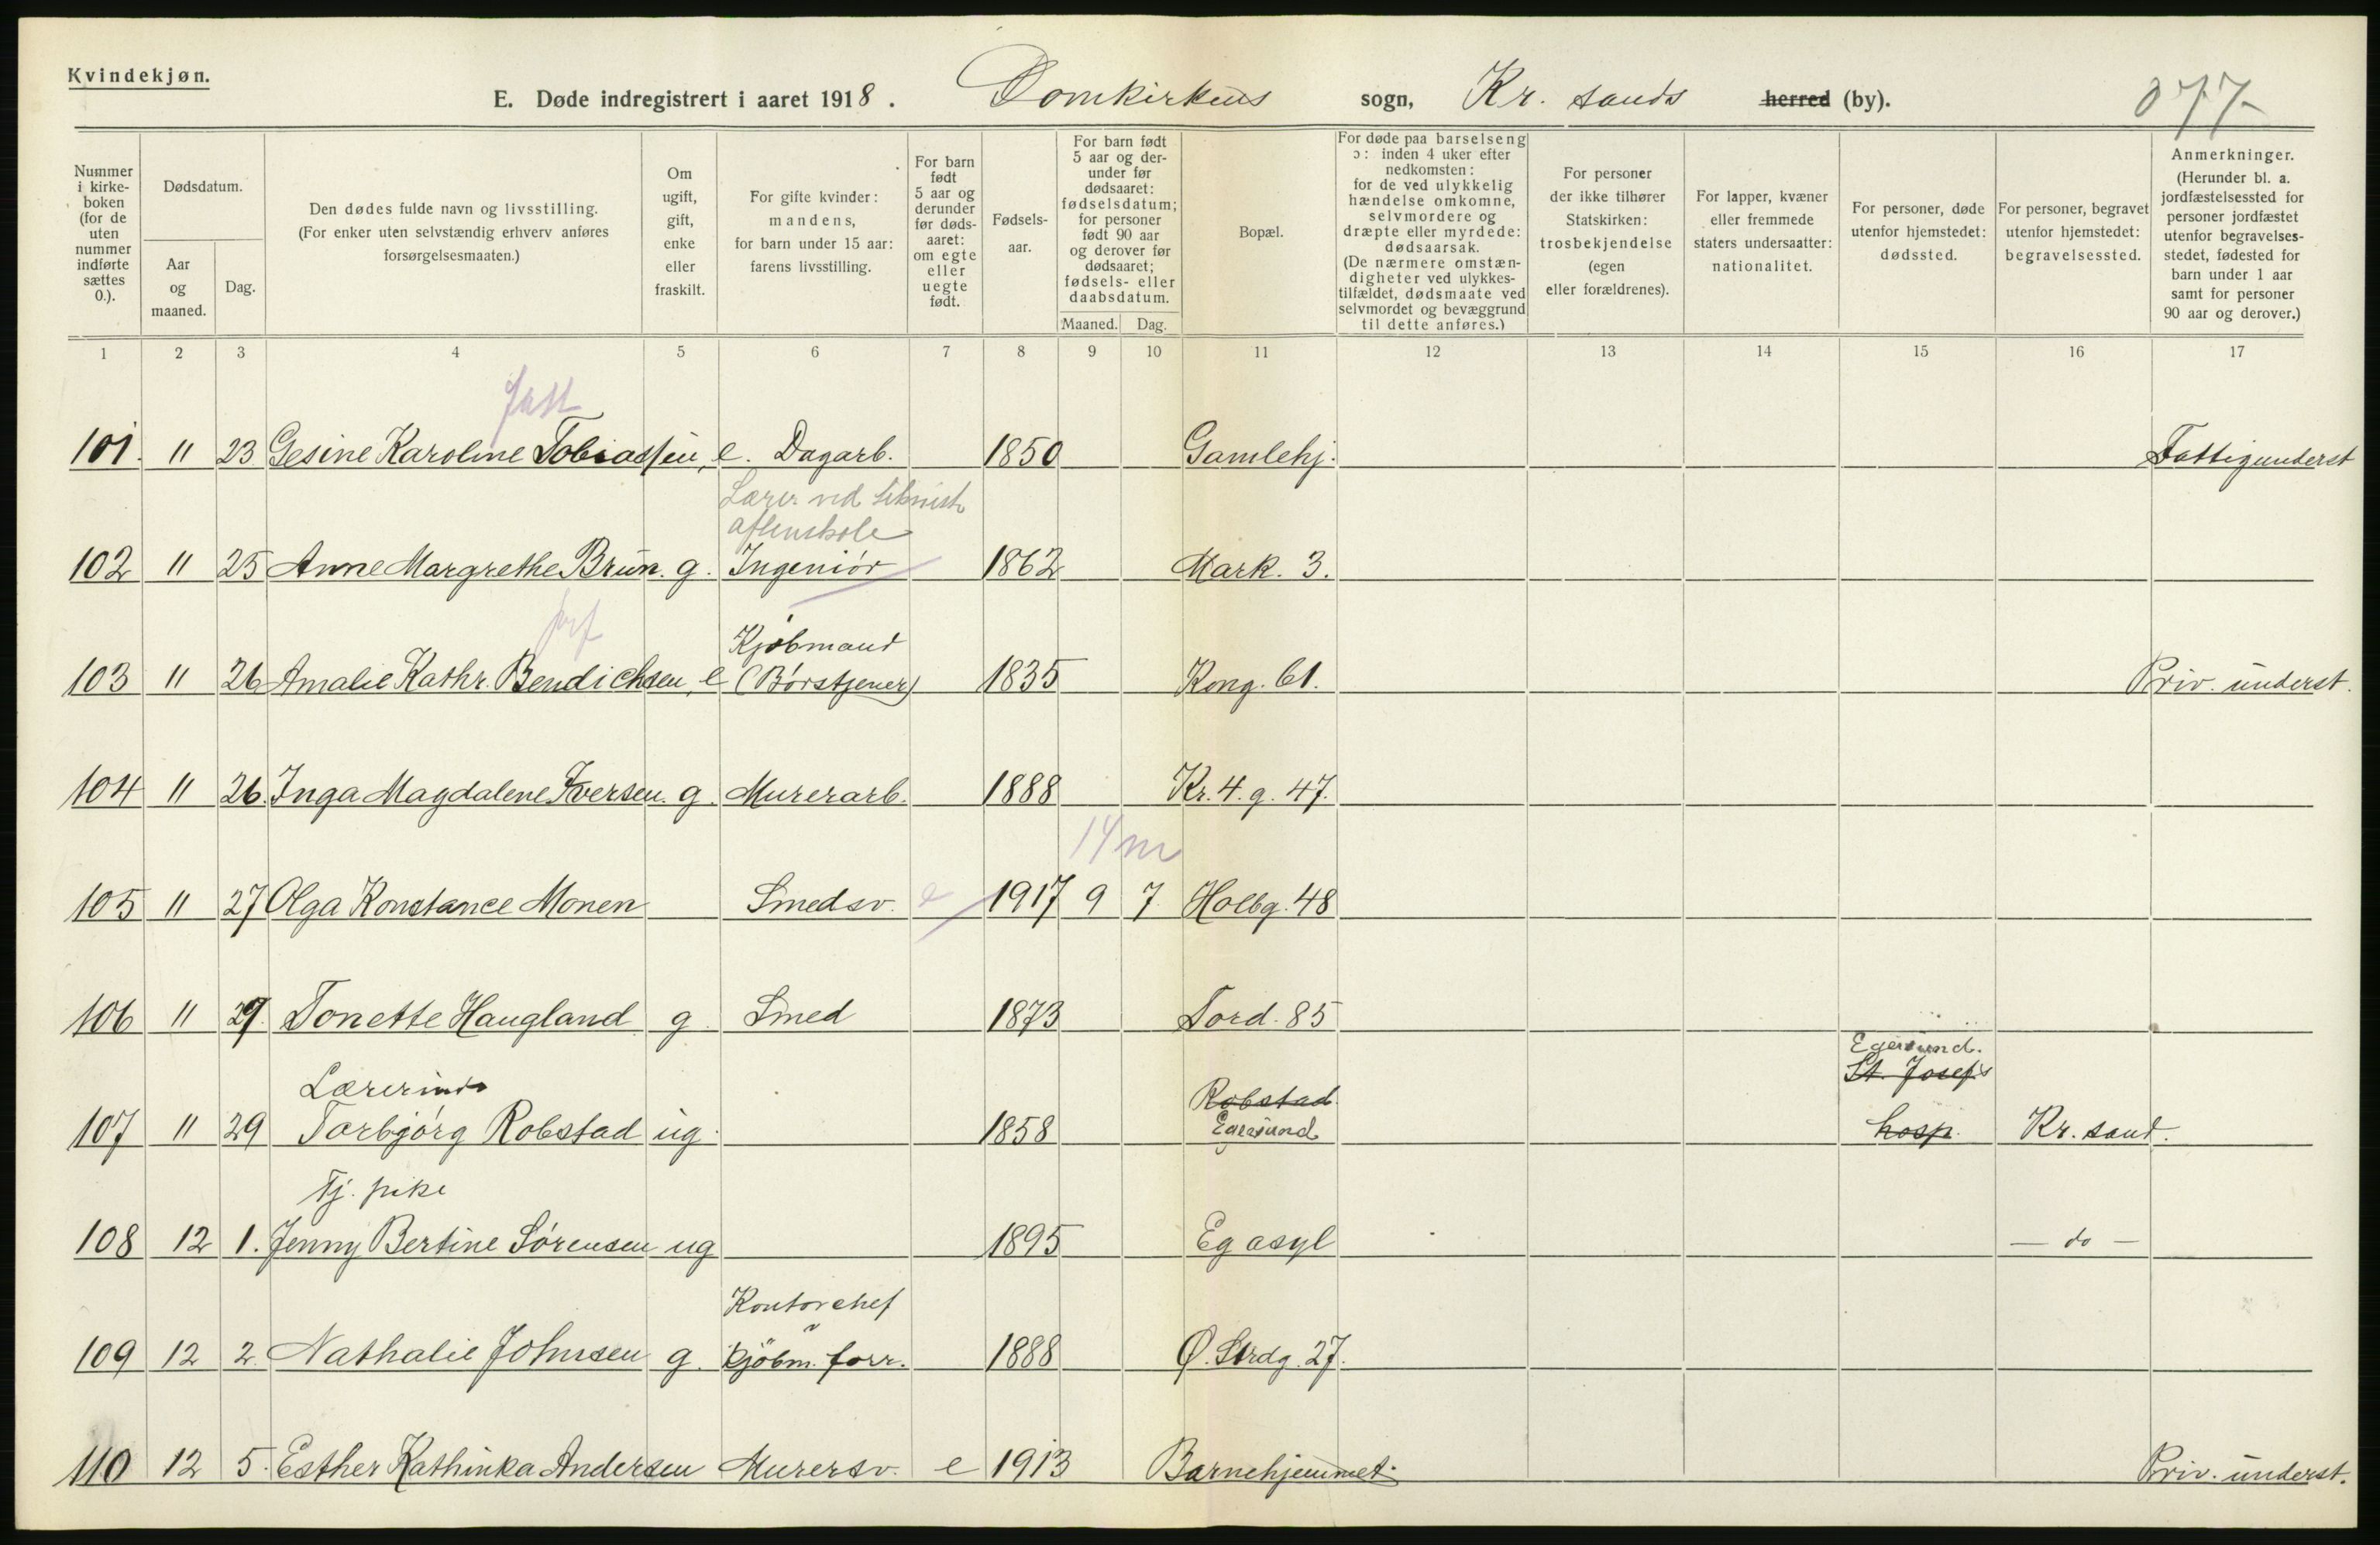 Kvindekjøn.
E. Døde indregistrert i aaret 1918. Domkirkens sogn, Kr. sands herred (by). 077
Nummer i kirke-boken (for de uten nummer indførte sættes 0.).
Dødsdatum.
Aar og maaned.
Dag.
Den dødes fulde navn og livsstilling. (For enker uten selvstændig erhverv anføres forsørgelsesmaaten.)
Om ugift, gift, enke eller fraskilt.
For gifte kvinder: mandens, for barn under 15 aar: farens livsstilling.
For barn født 5 aar og derunder før døds-aaret: om egte eller uegte født.
Fødsels-aar.
For barn født 5 aar og der-under før dødsaaret: fødselsdatum; for personer født 90 aar og derover før dødsaaret; fødsels- eller daabsdatum.
Maaned. Dag.
Bopæl.
For døde paa barselseng ɔ: inden 4 uker efter nedkomsten: for de ved ulykkelig hændelse omkomne, selvmordere og dræpte eller myrdede: dødsaarsak. (De nærmere omstæn-digheter ved ulykkes-tilfældet, dødsmaate ved selvmordet og bevæggrund til dette anføres.)
For personer der ikke tilhører Statskirken: trosbekjendelse (egen eller forældrenes).
For lapper, kvæner eller fremmede staters undersaatter: nationalitet.
For personer, døde utenfor hjemstedet: dødssted.
For personer, begravet utenfor hjemstedet: begravelsessted.
Anmerkninger. (Herunder bl. a. jordfæstelsessted for personer jordfæstet utenfor begravelses-stedet, fødested for barn under 1 aar samt for personer 90 aar og derover.)
1 2 3 4 5 6 7 8 9 10 11 12 13 14 15 16 17
101. " 23 Gesine Karoline Tobiassen, e. Dagarb. 1850 Gamlehj. Fattigunderst
Lærer ved teknisk
aftenskole
102 " 25 Anne Margrethe Brun. g. Ingeniør 1862 Mark. 3.
Kjøbmand
103 " 26 Amalie Kathr. Bendichsen, e (Børstjener) 1835 Kong. 61. Priv. underst.
104 " 26. Inga Magdalene Iversen. g. Murerarb. 1888 Kr. 4. g. 47.
14 m
105 " 27 Olga Konstance Monen Smedsv. e 1917 9 7. Holbg. 48
106 " 29. Tonette Haugland g Smed 1873 Tord. 85
Egersund.
St. Josefs
Lærerinde
Robstad
107 " 29 Torbjørg Robstad ug. 1858 Egersund hosp. Kr. sand.
Tj. pike
108 12 1. Jenny Bertine Sørensen ug 1895 Eg asyl — do —
Kontorchef
109 12 2. Nathalie Johnsen g. Kjøbm. forr. 1888 Ø. Strdg. 27.
110 12 5. Esther Kathinka Andersen Murersv. e 1913 Barnehjemmet. Priv. underst.